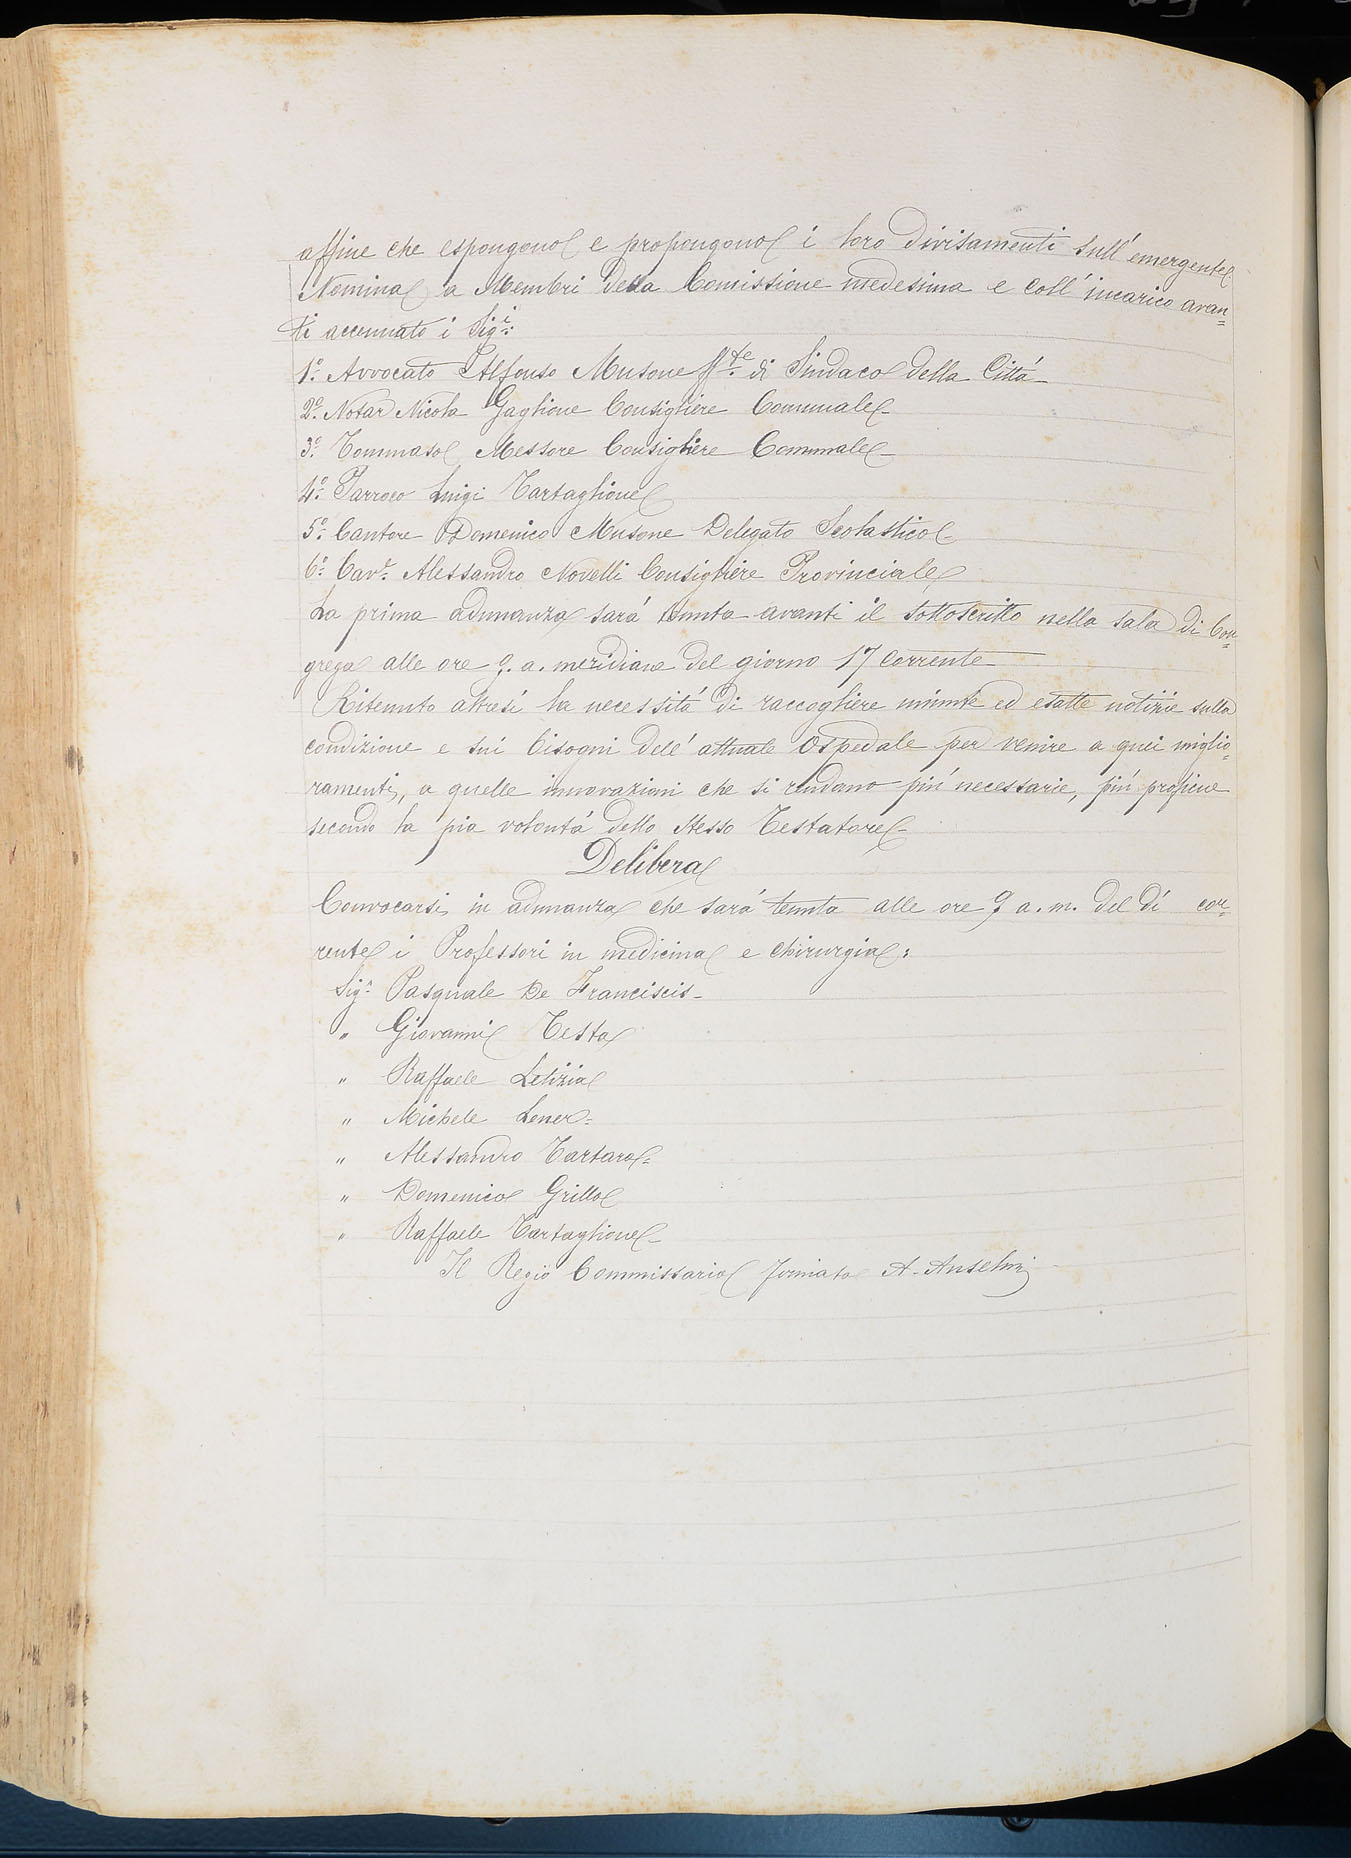 affine che espongono e propongono i loro divisamenti sull'emergente
Nomina a Membri della Comissione medesima e coll'incarico avan=
ti accennato i Sig.i
1.° Avvocato Alfonso Musone ff.te di Sindaco della Cittá
2.° Notar Nicola Gaglione Consigliere Comunale
3.° Tommaso Messore Consigliere Comunale
4.° Parroco Luigi Tartaglione
5.° Cantore Domenico Musone Delegato Scolastico
6.° Cav.r Alessandro Novelli Consigliere Provinciale
La prima adunanza sará tenuta avanti il sottoscritto nella sala di Con=
grega alle ore 9. a. meridiane del giorno 17 corrente
Ritenuto altresí la necessitá di raccogliere minute ed esatte notizie sulla
condizione e sui bisogni dell'attuale Ospedale per venire a quei miglio=
ramenti, a quelle innovazioni che si rendano piú necessarie, piú proficue
secondo la pia volontá dello stesso Testatore
Delibera
Convocarsi in adunanza che sará tenuta alle ore 9 a. m. del dí cor=
rente i Professori in medicina e chirurgia:
Sig.r Pasquale De Franciscis
" Giovanni Testa
" Raffaele Letizia
" Michele Lener=
" Alessandro Tartaro=
" Domenico Grillo
" Raffaele Tartaglione
Il Regio Commissario firmato A. Anselmi